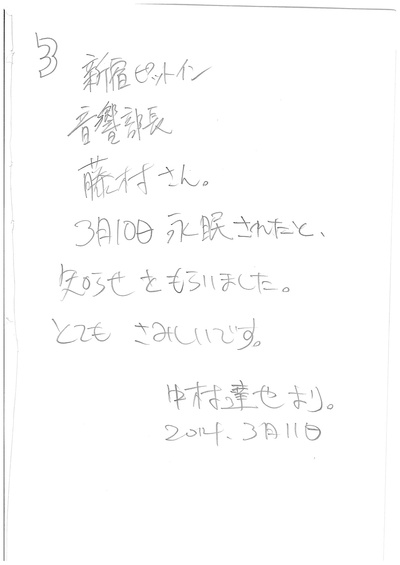 3
新宿ピットイン
音響部長
藤村さん。
3月10日 永眠されたと、
知らせをもらいました。
とても さみしいです。
中村達也より。
2014.3月11日